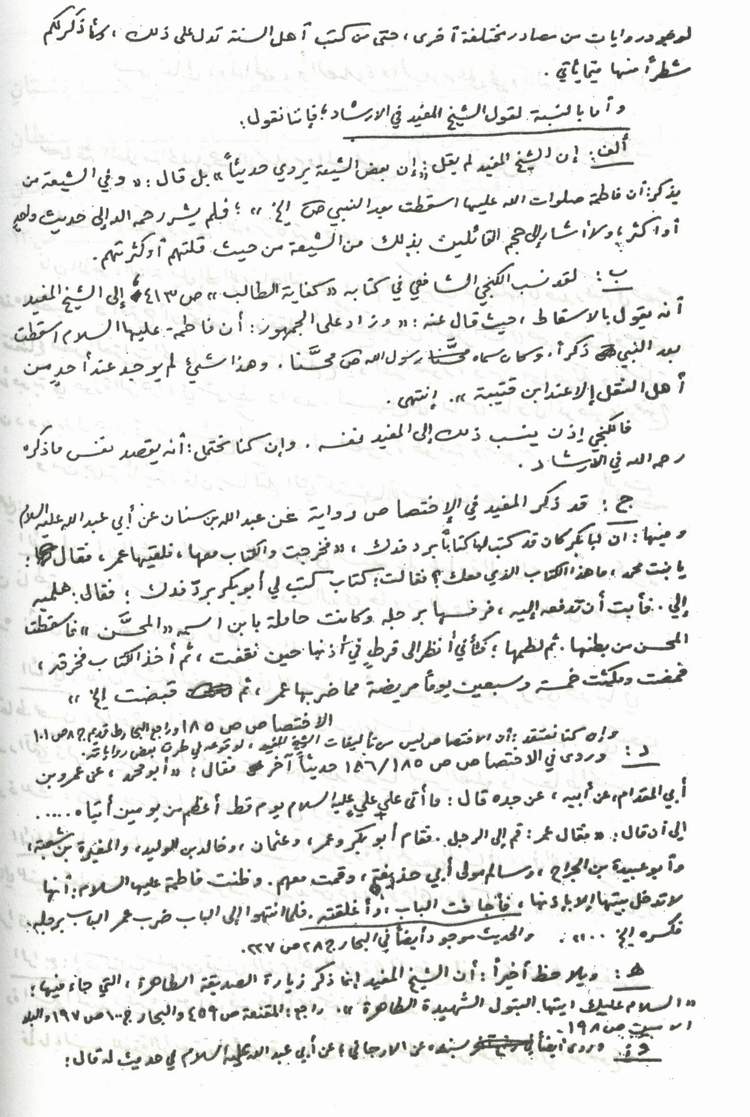 لوجود روايات من مصادر مختلفة أخرى، حتى من كتب أهل السنة تدل على ذلك، سأذكر لكم
شطراً منها فيما يأتي.
وأما بالنسبة لقول الشيخ المفيد في الارشاد؛ فإننا نقول:
ألف: إن الشيخ المفيد لم يقل: «إن بعض الشيعة يروي حديثاً» بل قال: «وفي الشيعة من
يذكر: أن فاطمة صلوات الله عليها اسقطت بعد النبي ص الخ»؛ فلم يشر رحمه الله إلى حديث واحدٍ
أو أكثر، ولا أشار إلى حجم القائلين بذلك من الشيعة من حيث قلتهم أو كثرتهم.
ب: لقد نسب الكنجي الشافعي في كتابه «كفاية الطالب» ص ٤١٣ إلى الشيخ المفيد
أنه يقول بالاسقاط، حيث قال عنه: «وزاد على الجمهور: أن فاطمة عليها السلام اسقطت
بعد النبي ذكراً، وكان سماه رسول الله ص محسَّنا. وهذا شيئ لم يوجد عند أحدٍ من
أهل النقل إلا عند ابن قتيبة». إنتهى.
فالكنجي إذن ينسب ذلك إلى المفيد نفسه. وإن كنا نحتمل: أنه يقصد نفس ما ذكره
رحمه الله في الارشاد.
ج: قد ذكر المفيد في الإختصاص رواية عن عبد الله بن سنان عن أبي عبد الله عليه السلام
ومنها: ان أبا بكر كان قد كتب لها كتاباً برد فدك، «فخرجت والكتاب معها، فلقيها عمر، فقال:
يا بنت محمد، ما هذا الكتاب الذي معك؟ فقالت: كتاب كتب لي أبو بكر بردّ فدك؛ فقال: هلميه
إلي. فأبت أن تدفعه إليه، فرفسها برجله وكانت حاملة بابن اسمه «المحسَّن» فاسقطت
المحسن من بطنها. ثم لطمها؛ كأني أنظر إلى قرطٍ في أذنها حين نقفت، ثم أخذ الكتاب فخرقه،
فمضت ومكثت خمسة وسبعين يوماً مريضة مما ضربها عمر، ثم قبضت الخ»
الاختصاص ص ١٨٥ وراجع البحار ط قديم ج ٨ ص ١٠١
وإن كنا نعتقد: أن الاختصاص ليس من تأليفات الشيخ المفيد، لوقوعه في طرق بعض رواياته.
د: وروى في الاختصاص ص ١٨٥/١٨٦ حديثاً آخر فقال: «أبو محمد، عن عمرو بن
أبي المقدام، عن أبيه، عن جده قال: ما أتى على علي عليه السلام يوم قط أعظم من يومين أتياه.....
إلى أن قال: «فقال عمر: قم إلى الرجل. فقام أبو بكر وعمر، وعثمان، وخالد بن الوليد، والمغيرة بن شعبة،
وأبو عبيدة بن الجراح، وسالم مولى أبي حذيفة، وقمت معهم. وظنت فاطمة عليها السلام: أنها
لا تدخل بيتها إلا باذنها، فأجافت الباب، وأغلقته. فلما انتهوا إلى الباب ضرب عمر الباب برجله،
فكسره الخ .....». والحديث موجود أيضاً في البحار ج ٢٨ ص ٢٢٧.
هـ: ويلاحظ أخيراً: أن الشيخ المفيد إنما ذكر زيارة الصديقة الطاهرة، التي جاء فيها:
«السلام عليك ايتها البتول الشهيدة الطاهرة». راجع: المقنعة ص ٤٥٩ والبحار ج ١٠٠ ص ١٩٧ والبلد
الامين ص ١٩٨.
و: وروى أيضاً بسنده عن الارجاني، عن أبي عبد الله عليه السلام في حديث له قال: